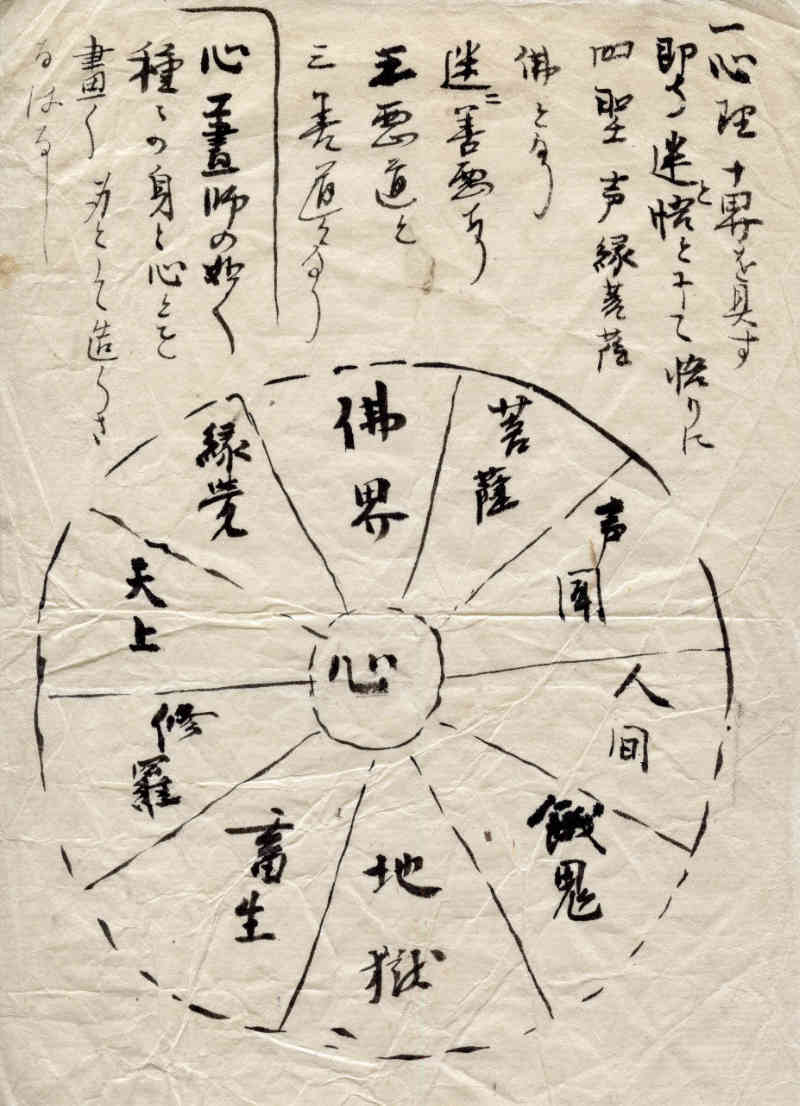 一心理十界を具す
即ち迷と悟とにて悟りに
四聖声縁菩薩
佛となり
迷ニ善悪あり
三悪道と
三善道となり
心工畫師の如く
種々の身と心とを
畫く
造らさ
るはなし
佛界
菩薩
声聞
人间
餓鬼
地獄
畜生
修羅
天上
縁覚
心